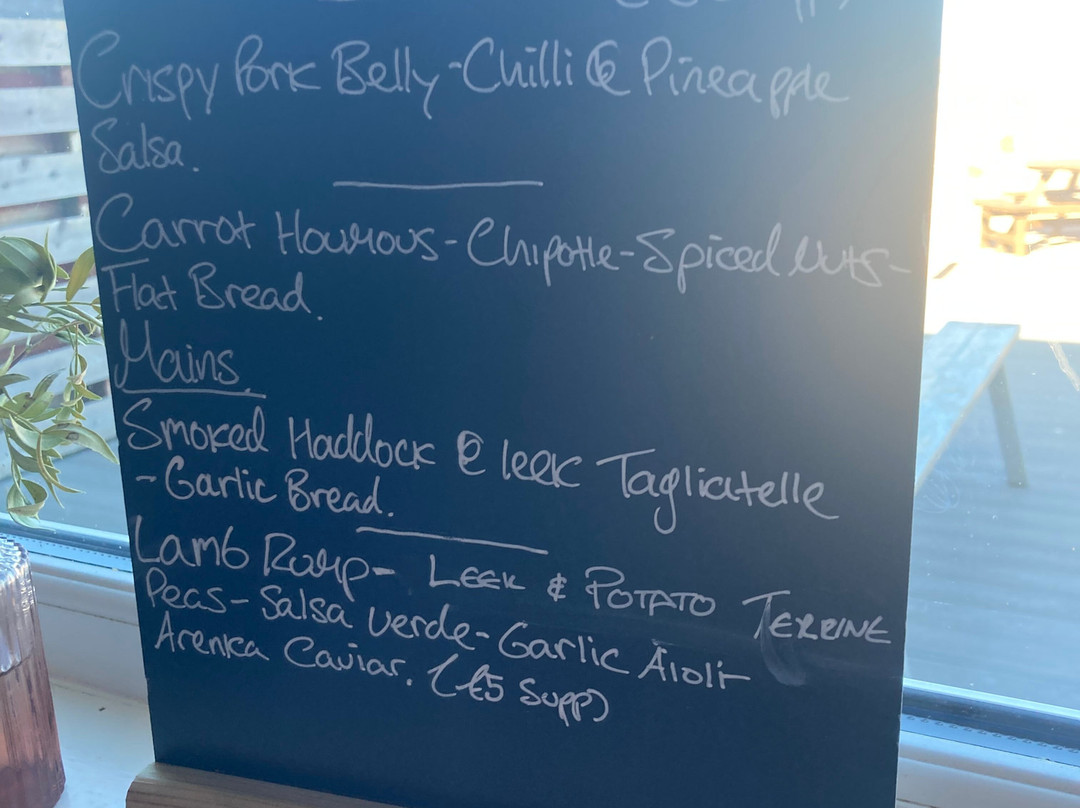 Crispy Pork Belly - Chilli & Pineapple
Salsa.
Carrot Houmous - Chipotle - Spiced Nuts -
Flat Bread.
Mains.
Smoked Haddock & leek Tagliatelle
- Garlic Bread.
Lamb Rump - LEEK & POTATO TERRINE
Peas - Salsa Verde - Garlic Aioli -
Arenka Caviar. (£5 Supp)